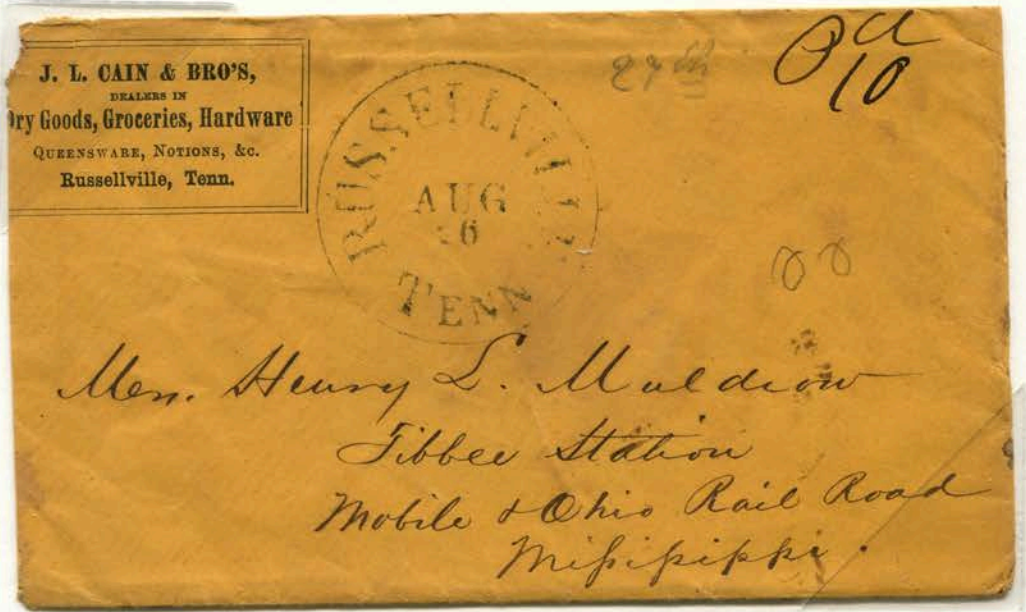 J. L. CAIN & BRO'S,
DEALERS IN
Dry Goods, Groceries, Hardware
QUEENSWARE, NOTIONS, &c.
Russellville, Tenn.
RUSSELLVILLE
AUG
TENN
27th
Pd
10
Mrs. Henry L. Muldrow
Tibbee Station
Mobile & Ohio Rail Road
Missisippi.